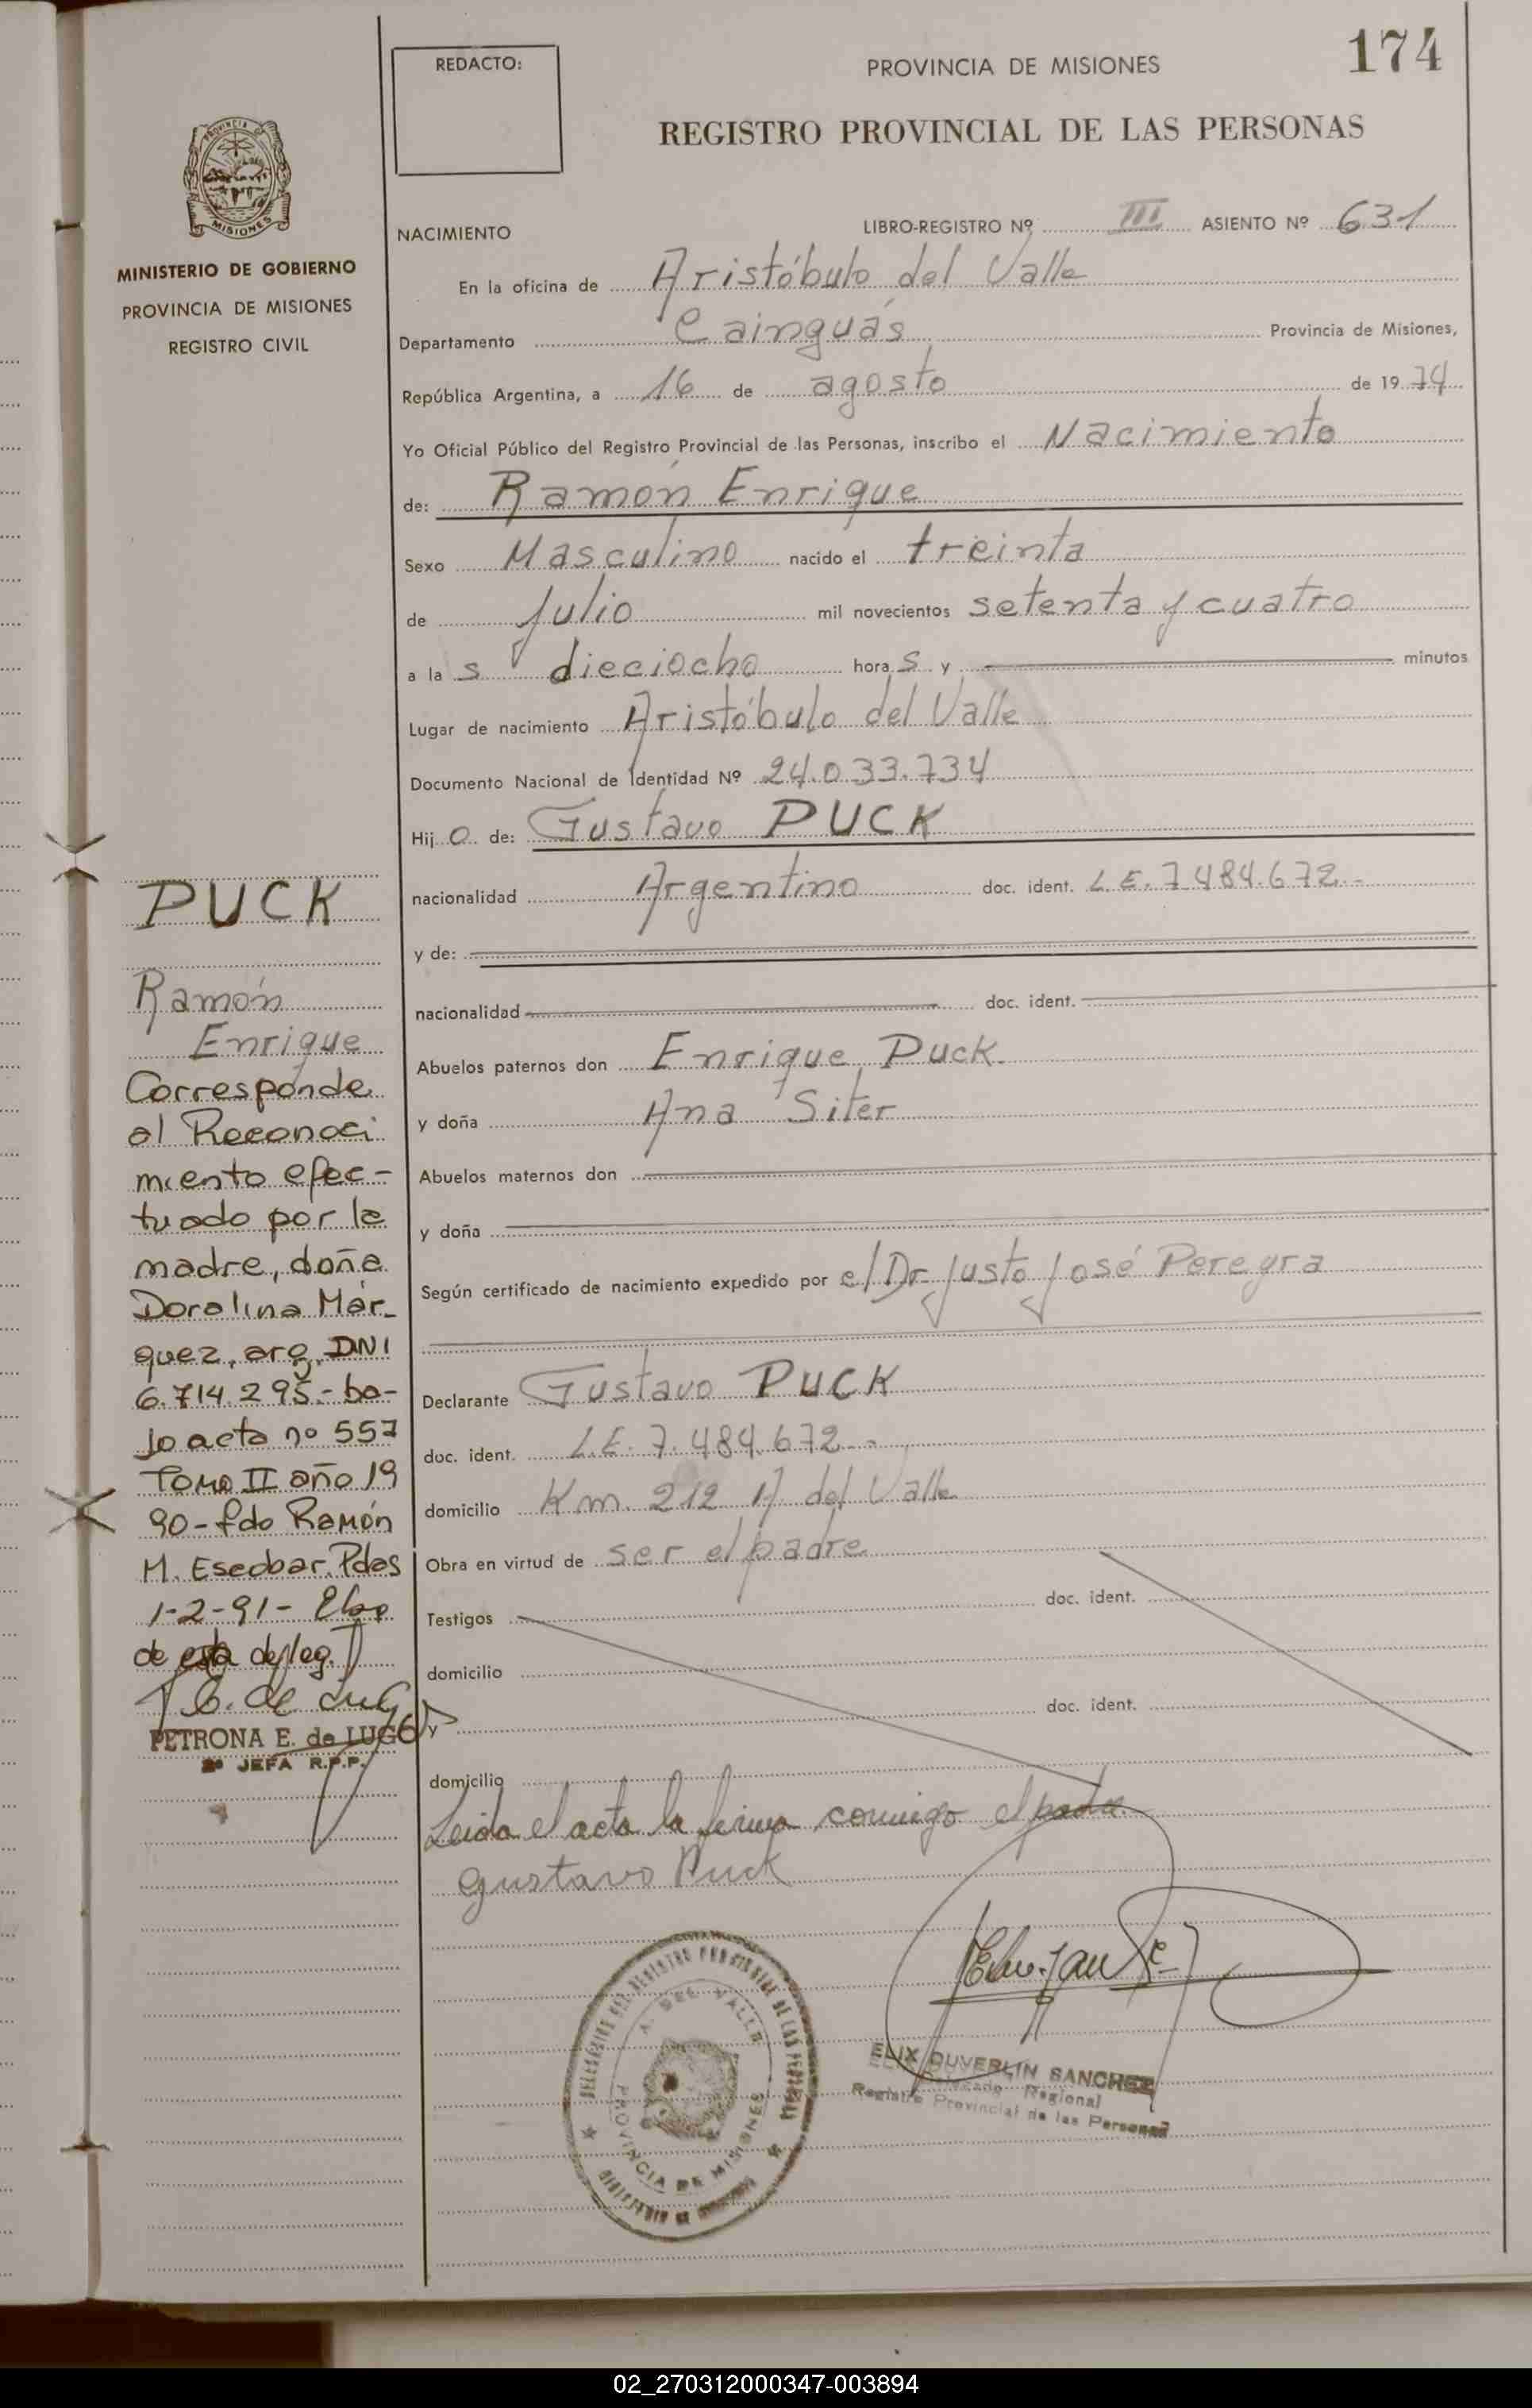 174
REDACTO:
PROVINCIA DE MISIONES
REGISTRO PROVINCIAL DE LAS PERSONAS
PROVINCIA D
MISIONES
MINISTERIO DE GOBIERNO
PROVINCIA DE MISIONES
REGISTRO CIVIL
NACIMIENTO LIBRO-REGISTRO Nº III ASIENTO Nº 631
En la oficina de Aristóbulo del Valle
Departamento Cainguás Provincia de Misiones,
República Argentina, a 16 de agosto de 1974
Yo Oficial Público del Registro Provincial de las Personas, inscribo el Nacimiento
de: Ramón Enrique
Sexo Masculino nacido el treinta
de Julio mil novecientos setenta y cuatro
a la s dieciocho hora s y minutos
Lugar de nacimiento Aristóbulo del Valle
Documento Nacional de Identidad Nº 24.033.734
Hij o de: Gustavo PUCK
nacionalidad Argentino doc. ident. L.E. 7.484.672.-
y de:
nacionalidad doc. ident.
Abuelos paternos don Enrique Puck
y doña Ana Siter
Abuelos maternos don
y doña
Según certificado de nacimiento expedido por el Dr Justo José Pereyra
Declarante Gustavo PUCK
doc. ident. L.E. 7.484.672.-
domicilio Km. 212 A del Valle
Obra en virtud de ser el padre
Testigos doc. ident.
domicilio
y doc. ident.
domicilio
Leida el acta la firma conmigo el padre.
Gustavo Puck
PUCK
Ramón
Enrique
Corresponde
al Reconoci
miento efec-
tuado por la
madre, doña
Doralina Már-
quez, arg. DNI
6.714.295.- ba-
jo acta nº 557
Tomo II año 19
90 - fdo Ramón
M. Escobar. Pdas
1-2-91-
de esta deleg.
PETRONA E. de LUGO
2ª JEFA R.P.P.
DELEGACION DEL REGISTRO PROVINCIAL DE LAS PERSONAS
A. DEL VALLE
PROVINCIA DE MISIONES
ELIX DUVERLIN SANCHEZ
Delegado Regional
Registro Provincial de las Personas
02_270312000347-003894